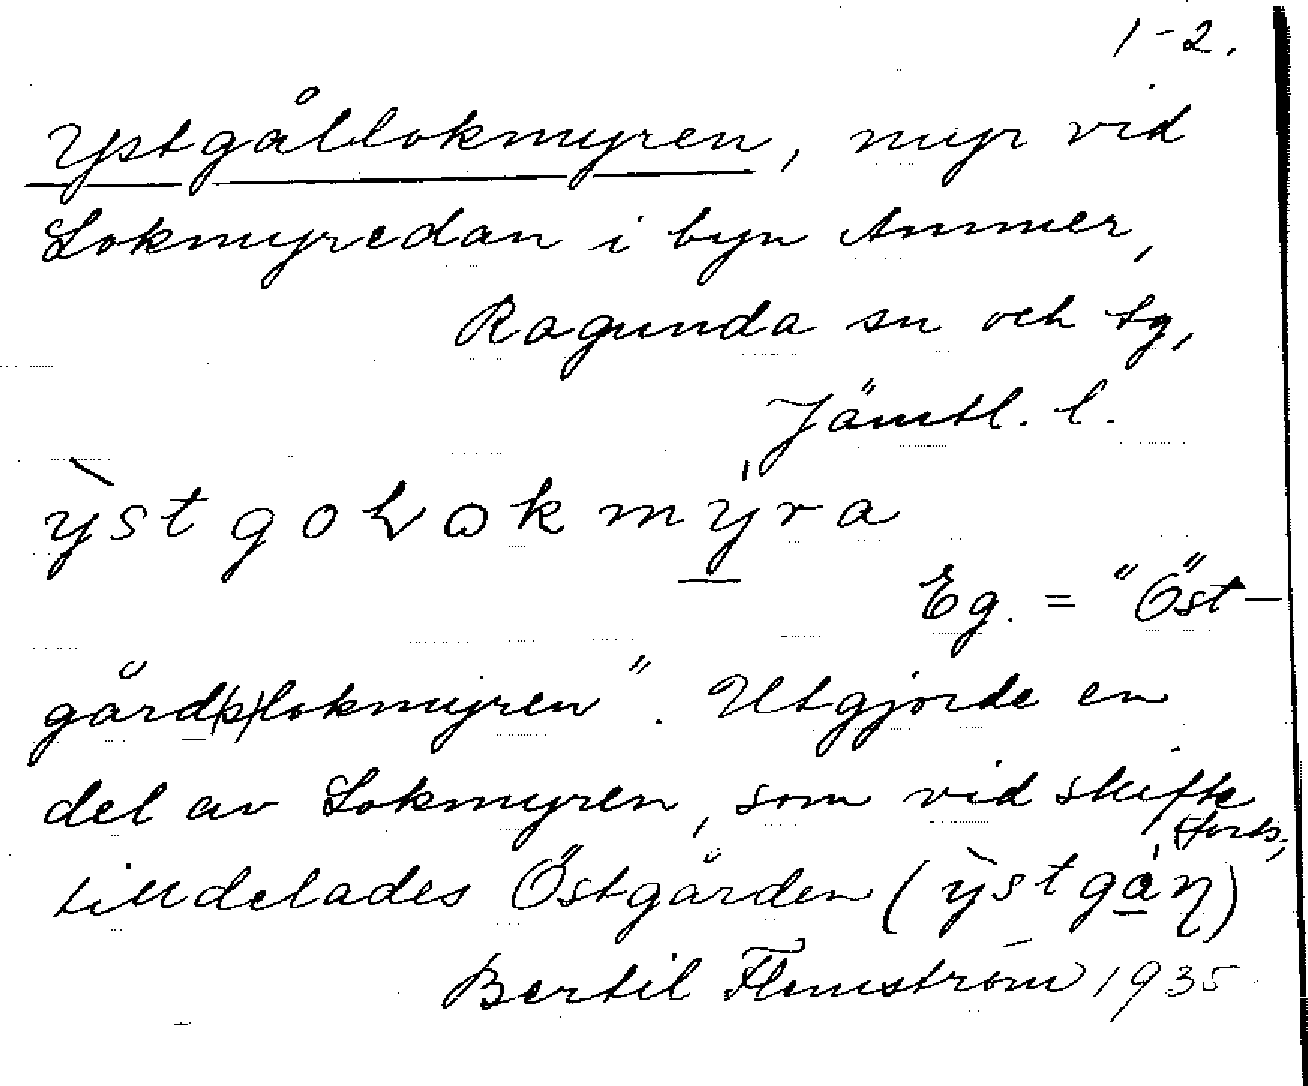 1-2.
Ystgållokmyren, myr vid
Lokmyredan i byn Ammer,
Ragunda sn och tg,
Jämtl. l.
Eg. = "Öst-
gård(s)lokmyren". Utgjorde en
del av Lokmyren, som vid skifte
(forts.,
tilldelades Östgården (
Bertil Flemström 1935